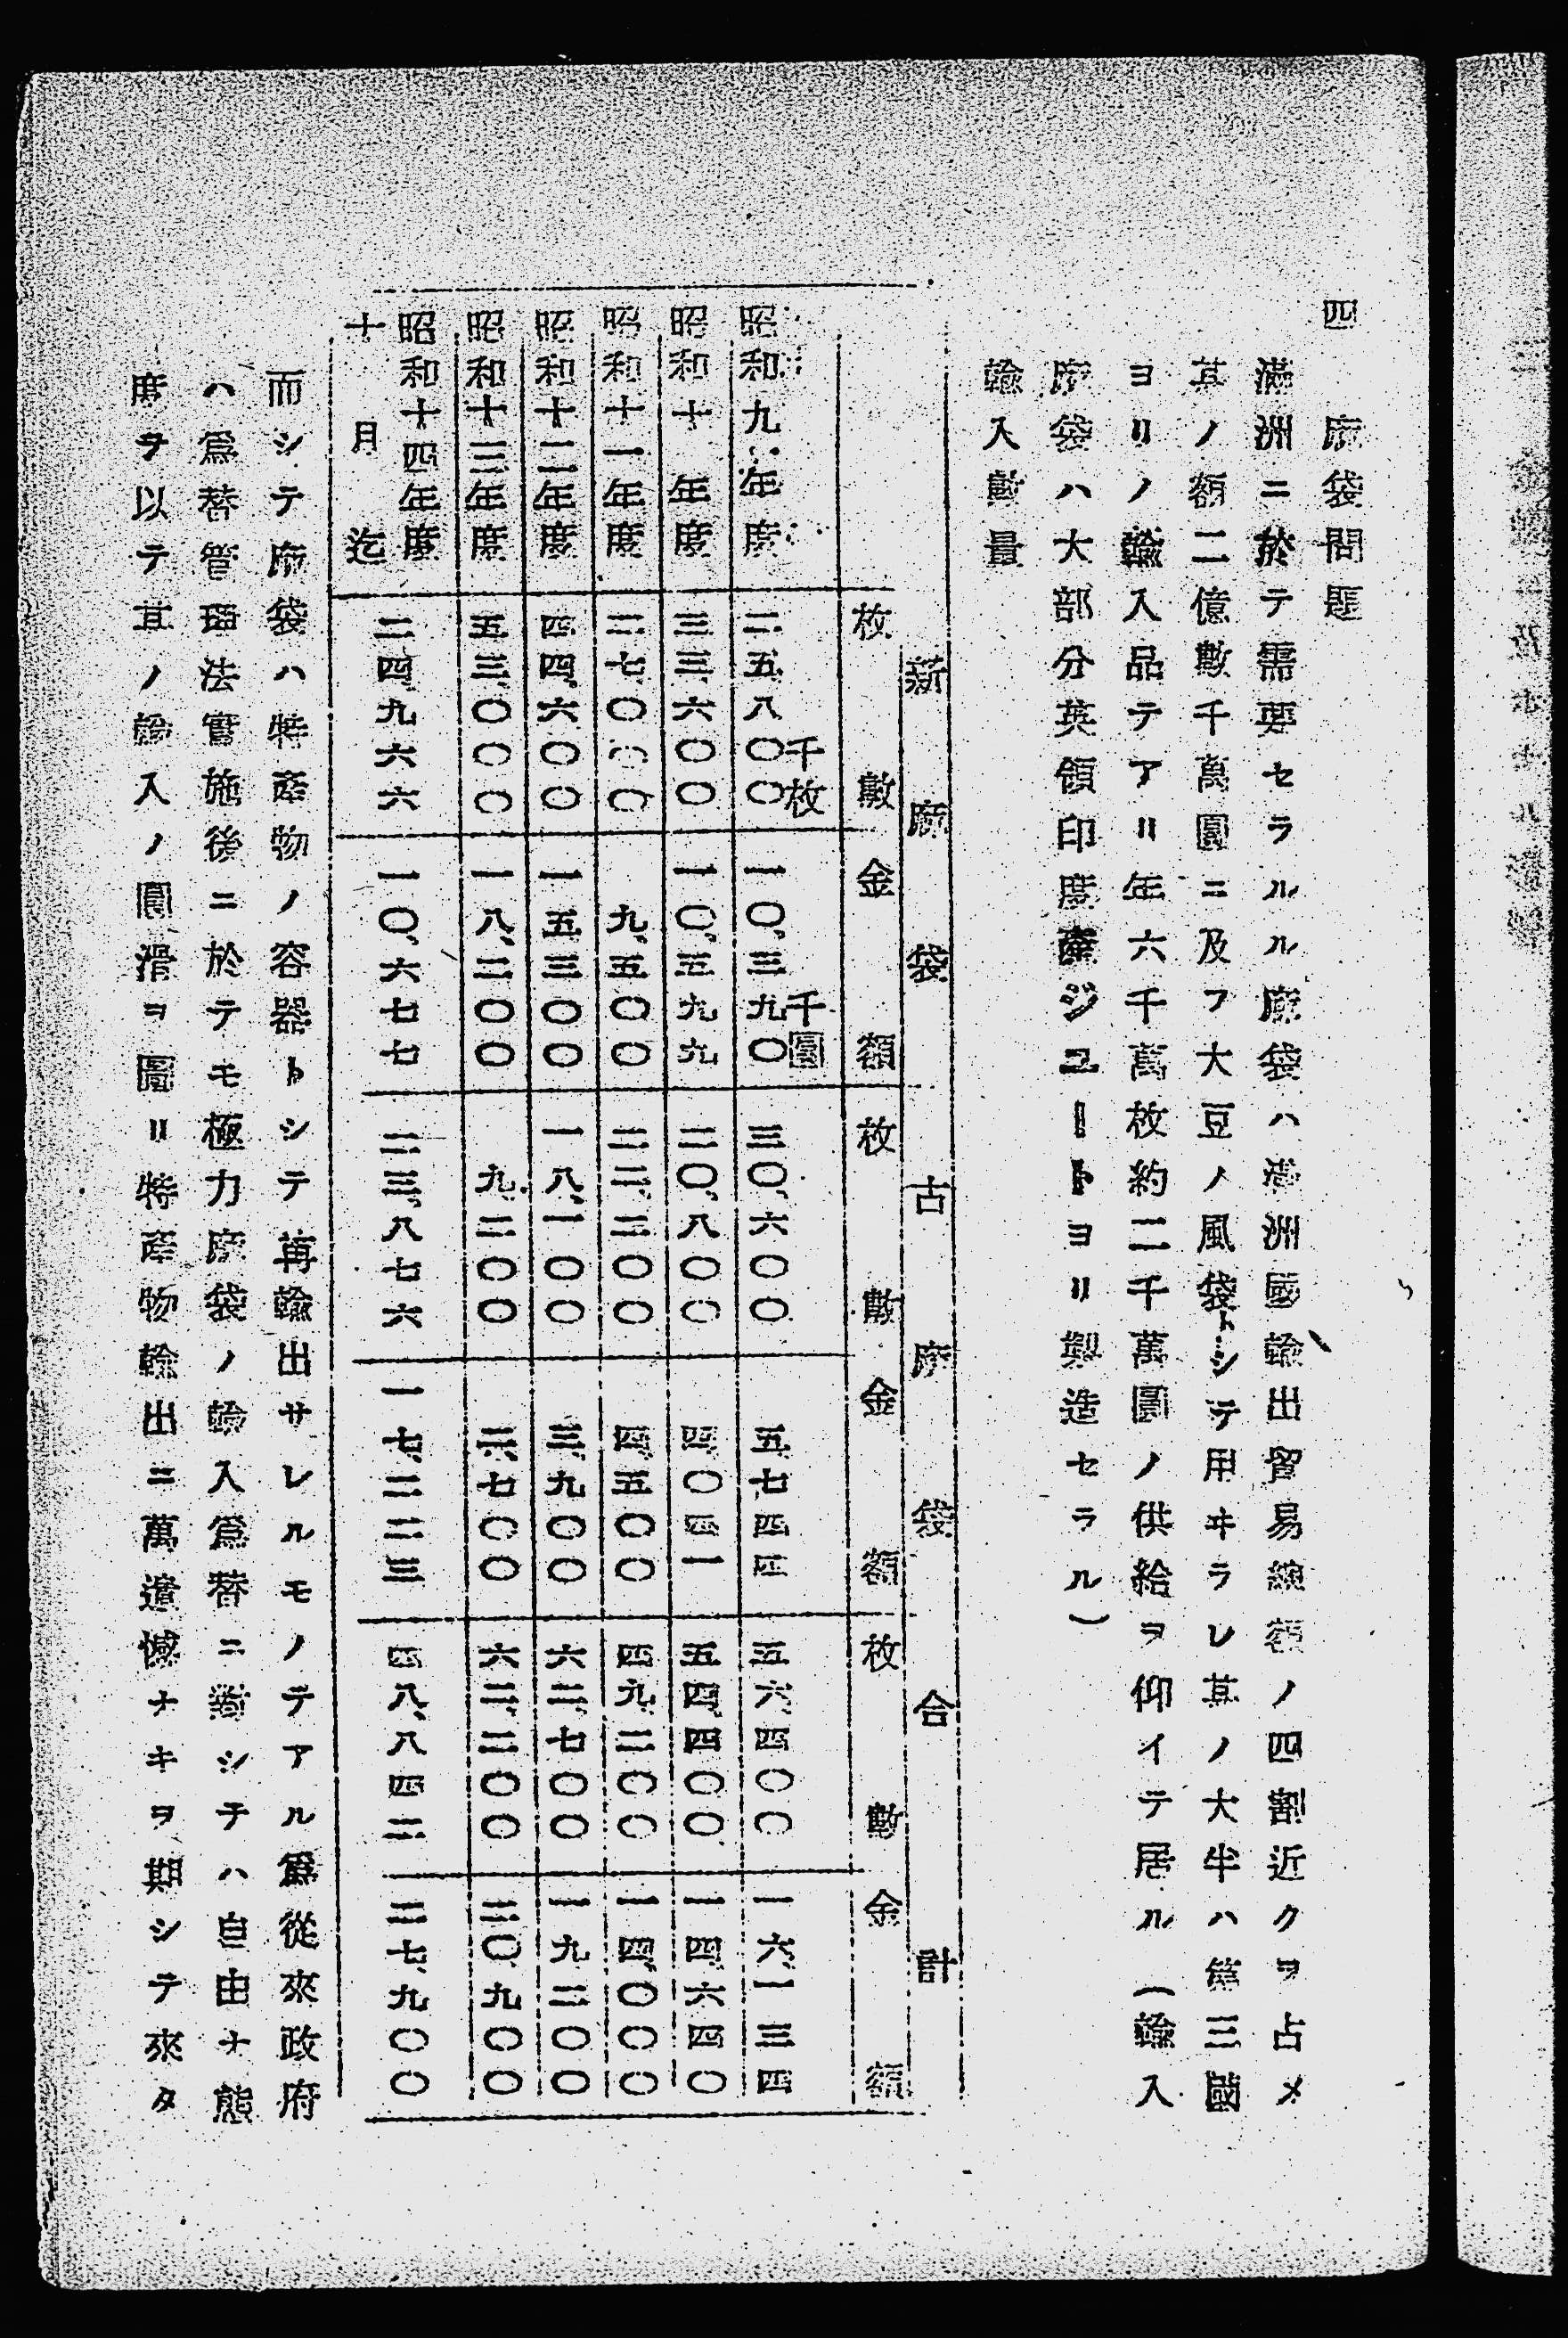 四 麻袋問題
滿洲ニ於テ需要セラルル麻袋ハ滿洲國輸出貿易總額ノ四割近クヲ占メ
其ノ額二億數千萬圓ニ及フ大豆ノ風袋トシテ用ヰラレ其ノ大半ハ第三國
ヨリノ輸入品テアリ年六千萬枚約二千萬圓ノ供給ヲ仰イテ居ル(輸入
麻袋ハ大部分英領印度產ジユートヨリ製造セラル)
輸入數量
新麻袋 古麻袋 合計
枚數 金額 枚數 金額 枚數 金額
千枚 千圓
昭和九年度 二五、八〇〇 一〇、三九〇 三〇、六〇〇 五、七四四 五六、四〇〇 一六、一三四
昭和十年度 三三、六〇〇 一〇、五九九 二〇、八〇〇 四、〇四一 五四、四〇〇 一四、六四〇
昭和十一年度 二七、〇〇〇 九、五〇〇 二二、二〇〇 四、五〇〇 四九、二〇〇 一四、〇〇〇
昭和十二年度 四四、六〇〇 一五、三〇〇 一八、一〇〇 三、九〇〇 六二、七〇〇 一九、二〇〇
昭和十三年度 五三、〇〇〇 一八、二〇〇 九、二〇〇 二、七〇〇 六二、二〇〇 二〇、九〇〇
昭和十四年度 二四、九六六 一〇、六七七 二三、八七六 一七、二二三 四八、八四二 二七、九〇〇
十月迄
而シテ麻袋ハ特產物ノ容器トシテ再輸出サレルモノテアル爲從來政府
ハ爲替管理法實施後ニ於テモ極力麻袋ノ輸入爲替ニ對シテハ自由ナ態
度ヲ以テ其ノ輸入ノ圓滑ヲ圖リ特產物輸出ニ萬遺憾ナキヲ期シテ來タ